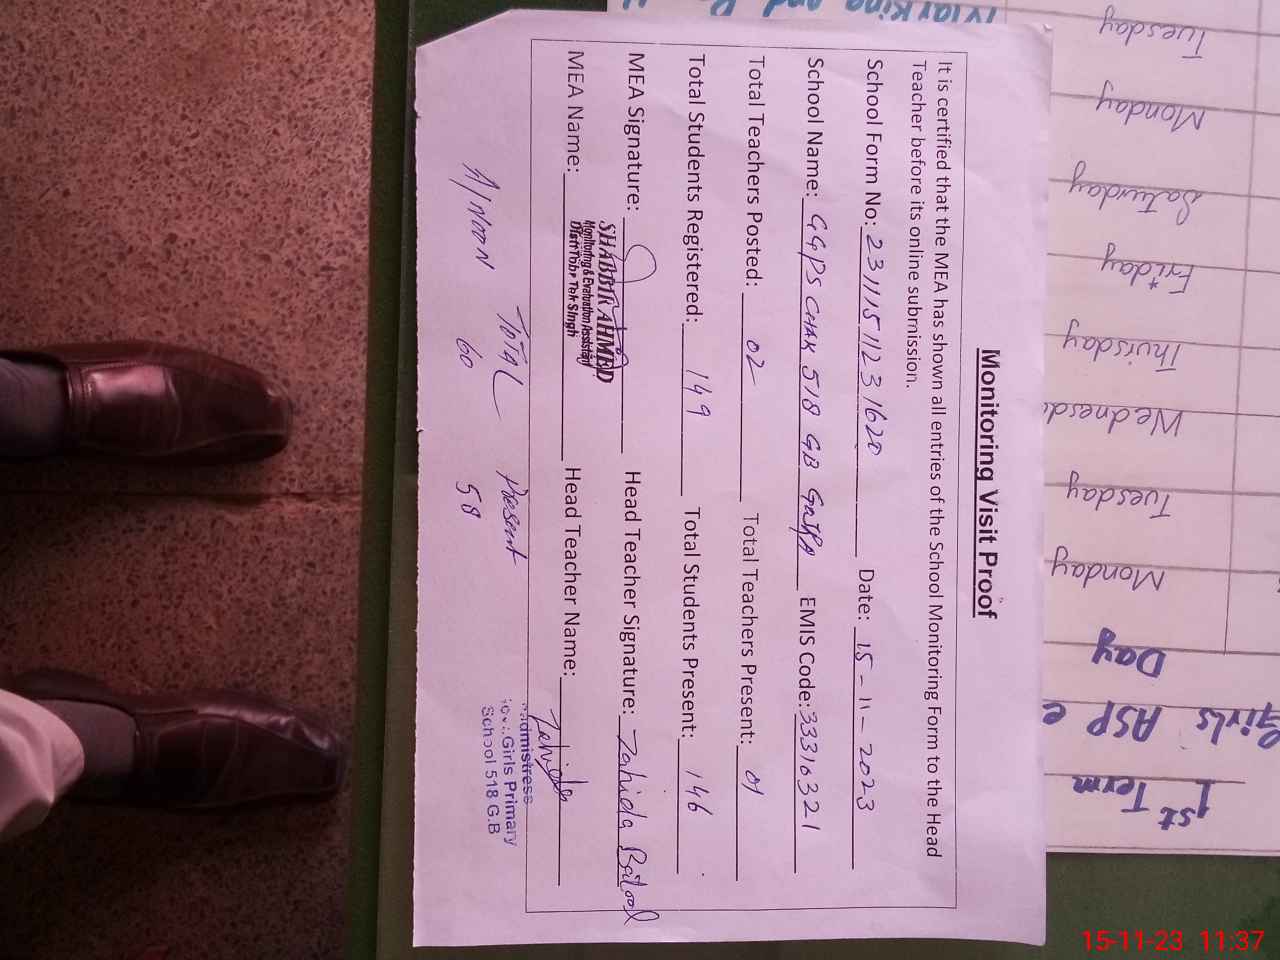 Monitoring Visit Proof
It is certified that the MEA has shown all entries of the School Monitoring Form to the Head
Teacher before its online submission.
School Form No: 23111511231620 Date: 15-11-2023
School Name: GGPS CHAK 518 GB EMIS Code: 33310321
Total Teachers Posted: 02 Total Teachers Present: 01
Total Students Registered: 149 Total Students Present: 146
MEA Signature: Head Teacher Signature: Zahida Batool
SHABBIR AHMED
Monitoring & Evaluation Assistant
Distt Toba Tek Singh
MEA Name: Head Teacher Name: Zahida
Girls Primary
School 518 G.B
TOTAL Present
A/NOON 60 58
1st Term
Girls ASP
Day
Monday
Tuesday
Wednesd
Thursday
Friday
Saturday
Monday
Tuesday
Marking and
15-11-23 11:37